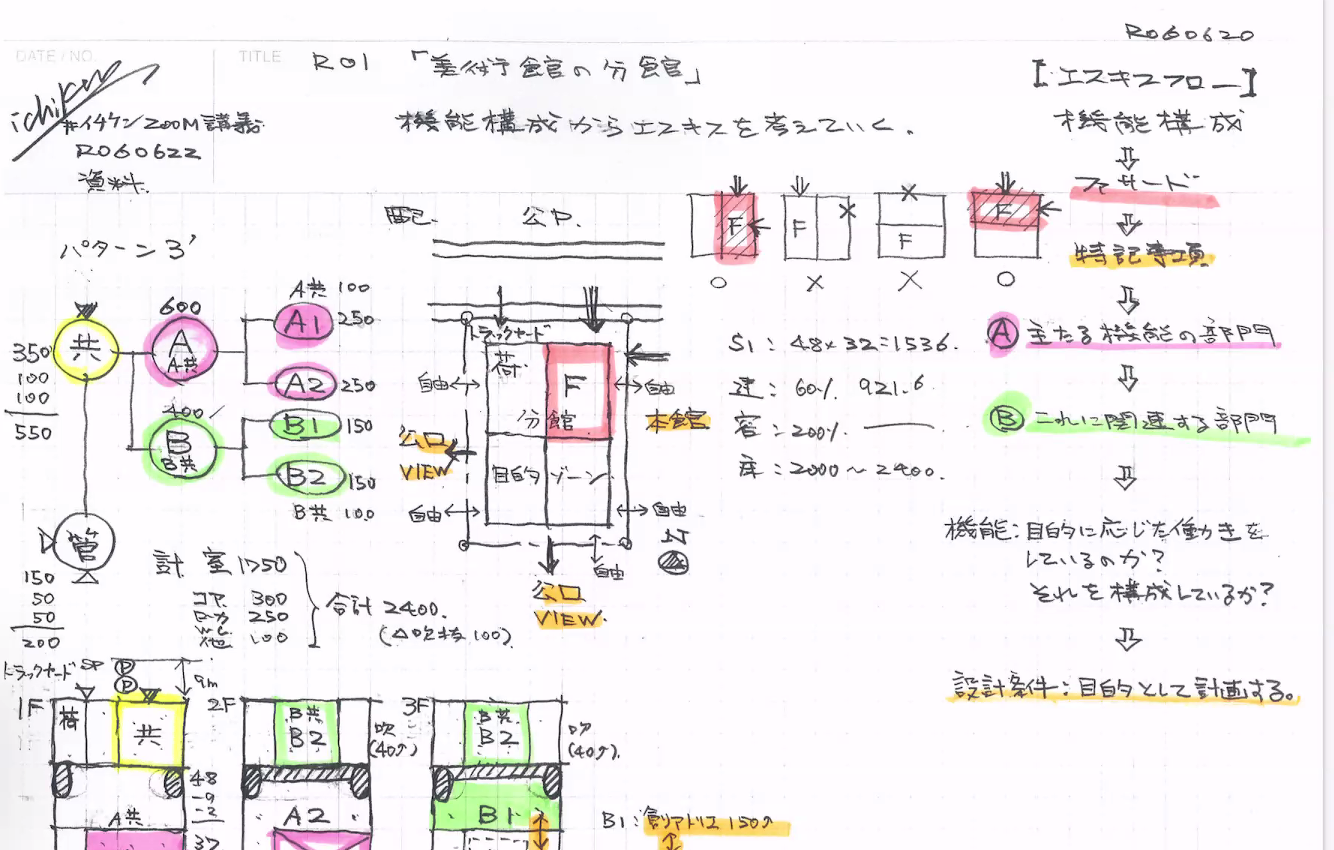 DATE / NO.
TITLE
R060620
R01 「美術館の分館」
ichiken
#イチケンZOOM講義
R060622
資料
機能構成からエスキスを考えていく。
【エスキスフロー】
機能構成
⇩
ファサード
⇩
特記事項
⇩
Ⓐ 主たる機能の部門
⇩
Ⓑ これに関連する部門
⇩
機能:目的に応じた働きを
しているのか?
それを構成しているか?
⇩
設計条件:目的として計画する。
F F F F
○ × × ○
パターン3'
共
350
100
100
550
600
A
A共
400
B
B共
A共 100
A1 250
A2 250
B1 150
B2 150
B共 100
管
150
50
50
200
計 室 1750
コア 300
ローカ 250
他 100
合計 2400.
(△吹抜 100)
公P.
トラックヤード
荷
F
分館
目的 ゾーン
自由
自由
自由
自由
自由
本館
公園
VIEW
公園
VIEW
N
S1:48×32=1536.
建:60% 921.6
容:200%
床:2000~2400.
トラックヤード SP
P
P
9m
1F
荷
共
A共
48
-9
-2
37
2F
B共
B2
吹
(40㎡)
A2
3F
B共
B2
吹
(40㎡)
B1
B1:創アトリエ 150㎡